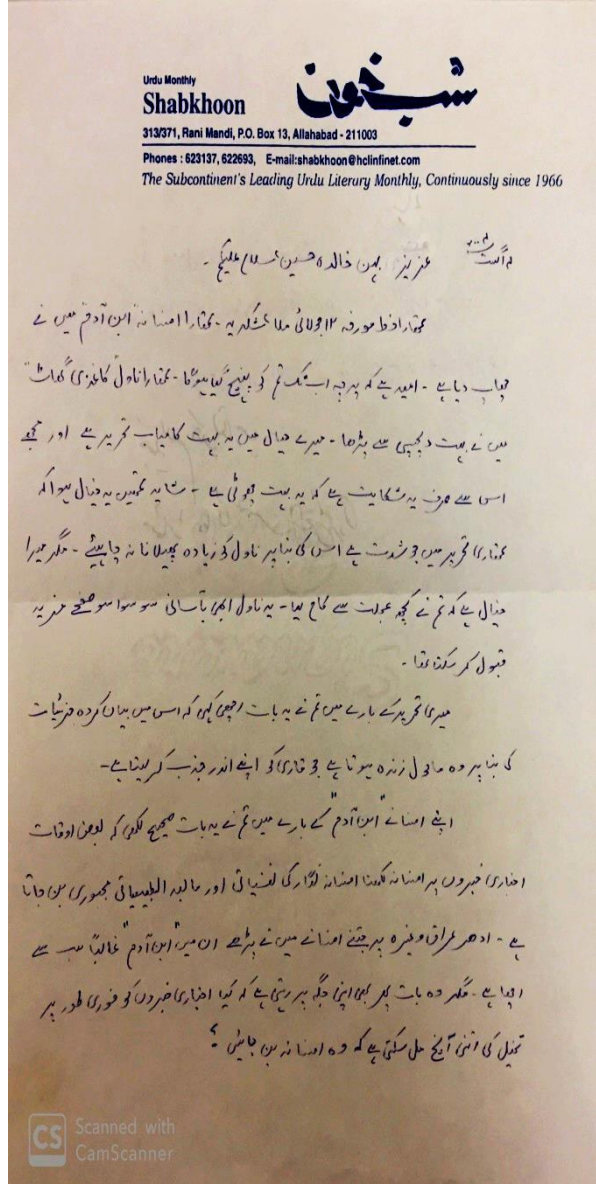 Urdu Monthly
Shabkhoon
شب خون
313/371, Rani Mandi, P.O. Box 13, Allahabad - 211003
Phones : 623137, 622693, E-mail:shabkhoon@hclinfinet.com
The Subcontinent's Leading Urdu Literary Monthly, Continuously since 1966
اگست
عزیز بہن خالدہ حسین السلام علیکم۔
تمھارا خط مورخہ ۱۲ جولائی ملا شکریہ۔ تمھارا افسانہ ابن آدم میں نے
چھاپ دیا ہے۔ امید ہے کہ پرچہ اب تک تم کو پہنچ گیا ہوگا۔ تمھارا ناول "کاغذی گھاٹ"
میں نے بہت دلچسپی سے پڑھا۔ میرے خیال میں یہ بہت کامیاب تحریر ہے اور مجھے
اس سے صرف یہ شکایت ہے کہ یہ بہت چھوٹی ہے۔ شاید تمھیں یہ خیال ہوا کہ
تمھاری تحریر میں جو شدت ہے اس کی بنا پر ناول کو زیادہ پھیلانا نہ چاہیئے۔ مگر میرا
خیال ہے کہ تم نے کچھ عجلت سے کام لیا۔ یہ ناول ابھی بآسانی سو سوا سو صفحے مزید
قبول کر سکتا تھا۔
میری تحریر کے بارے میں تم نے یہ بات اچھی کہی کہ اس میں بیان کردہ جزئیات
کی بنا پر وہ ماحول زندہ ہوتا ہے جو قاری کو اپنے اندر جذب کر لیتا ہے۔
اپنے افسانے "ابن آدم" کے بارے میں تم نے یہ بات صحیح لکھی کہ بعض اوقات
اخباری خبروں پر افسانہ لکھنا افسانہ نگار کی نفسیاتی اور مابعد الطبیعیاتی مجبوری بن جاتا
ہے۔ ادھر عراق وغیرہ پر جتنے افسانے میں نے پڑھے ان میں "ابن آدم" غالباً سب سے
اچھا ہے۔ مگر وہ بات پھر بھی اپنی جگہ پر رہتی ہے کہ کیا اخباری خبروں کو فوری طور پر
تخیل کی اتنی آنچ مل سکتی ہے کہ وہ افسانہ بن جائیں؟
CS Scanned with
CamScanner